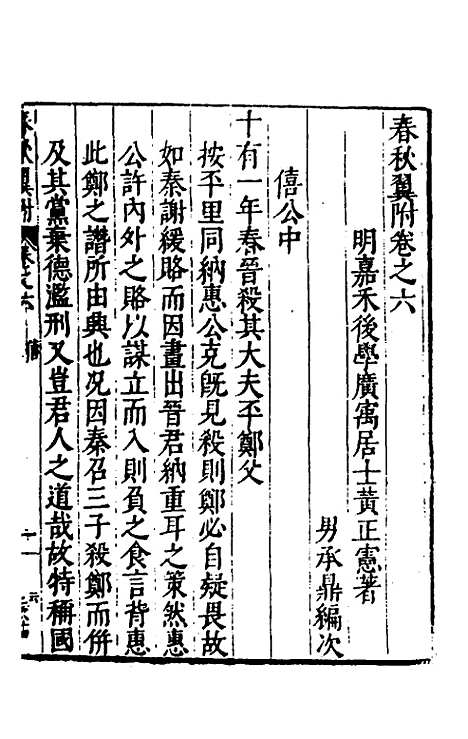 春秋翼附卷之六
明嘉禾後學廣寓居士黃正憲著
男承鼎編次
僖公中
十有一年春晉殺其大夫丕鄭父
按丕里同納惠公克旣見殺則鄭必自疑畏故
如秦謝緩賂而因畫出晉君納重耳之策然惠
公許內外之賂以謀立而入則負之食言背惠
此鄭之譖所由興也况因秦召三子殺鄭而倂
及其黨棄德濫刑又豈君人之道哉故特稱國
春秋翼附 卷之六 僖